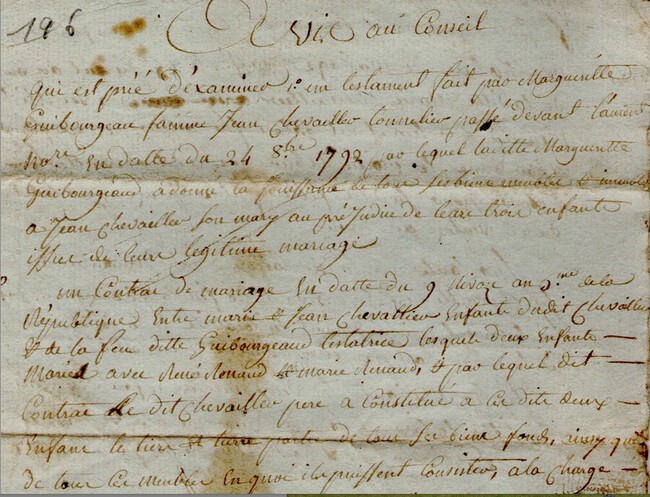 196
Avis au Conseil
qui est prié d'éxaminer 1.° un testament fait par Margueritte
Guibourgeau famme Jean Chevallier tonnelier passé devant
No.re En datte du 24 8.bre 1792 par lequel laditte Margueritte
Guibourgeaud a donné la Jouissance de tous ses biens meubles &
a Jean Chevallier son mary au préjudice de leurs trois enfants
issue de leure légitime mariage
un Contrat de mariage En datte du 9 Nivoze an de la
République, Entre marie & Jean Chevallier Enfants dudit Chevallier
& de la feu ditte Guibourgeaud testatrice lesquels deux Enfants —
Mariés avec René Renaud & marie Renaud, & par lequel dit —
Contrat le dit Chevallier pere a Constitué a ces dits deux —
Enfans le tiers & tierce partie de tous ses biens fonds, aussy que
de tous ces meubles En quoi ils puissent Consister, a la charge —